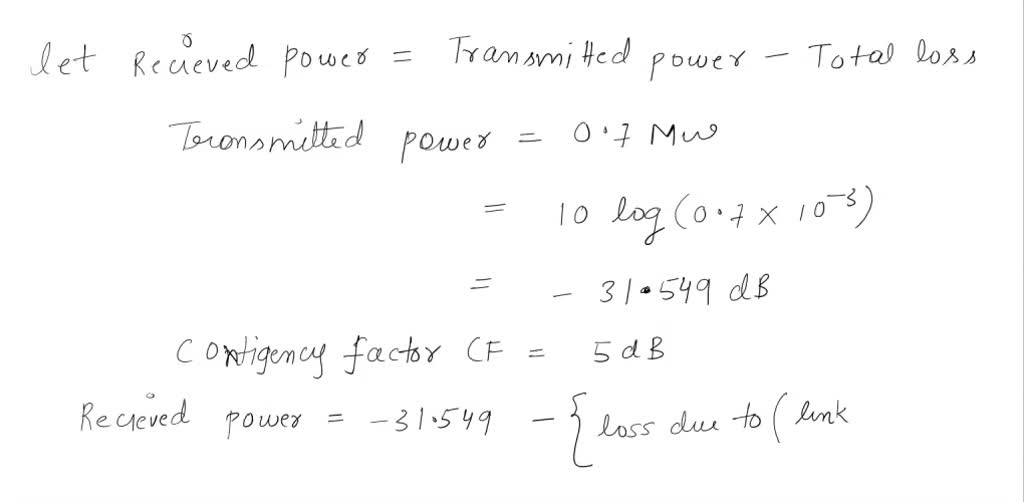 let Recieved power = Transmitted power - Total loss
Transmitted power = 0.7 Mw
= 10 log (0.7 × 10⁻³)
= - 31.549 dB
Contigency factor CF = 5 dB
Recieved power = -31.549 - { loss due to ( link